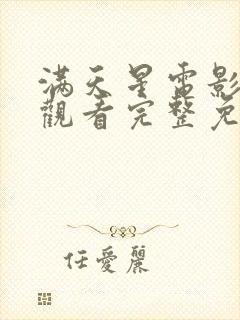 滿天星電影
觀看完整免
任愛麗